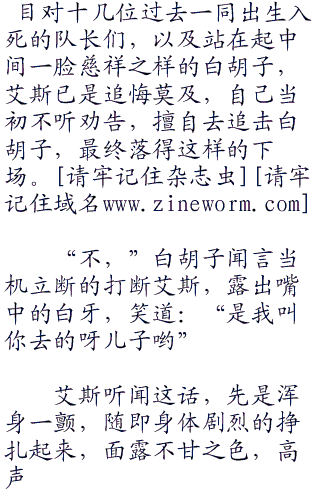 目对十几位过去一同出生入
死的队长们，以及站在起中
间一脸慈祥之样的白胡子，
艾斯已是追悔莫及，自己当
初不听劝告，擅自去追击白
胡子，最终落得这样的下
场。[请牢记住杂志虫][请牢
记住域名www.zineworm.com]
“不，”白胡子闻言当
机立断的打断艾斯，露出嘴
中的白牙，笑道：“是我叫
你去的呀儿子哟”
艾斯听闻这话，先是浑
身一颤，随即身体剧烈的挣
扎起来，面露不甘之色，高
声